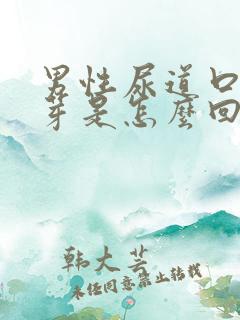 男性尿道口
芽是怎麼回
韩大芸
未经同意禁止转载